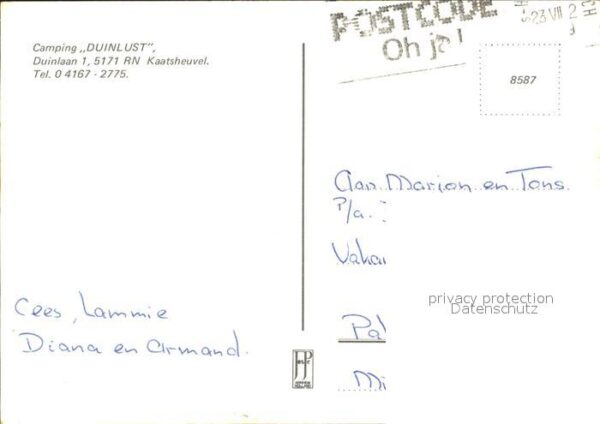 Camping „DUINLUST”,
Duinlaan 1, 5171 RN Kaatsheuvel.
Tel. 0 4167 - 2775.
POSTCODE
Oh ja!
23 VII 2
8587
Aan Marion en Tons.
P/a.
Vakan
privacy protection
Datenschutz
Pa
Mi
Cees, Lammie
Diana en Armand.